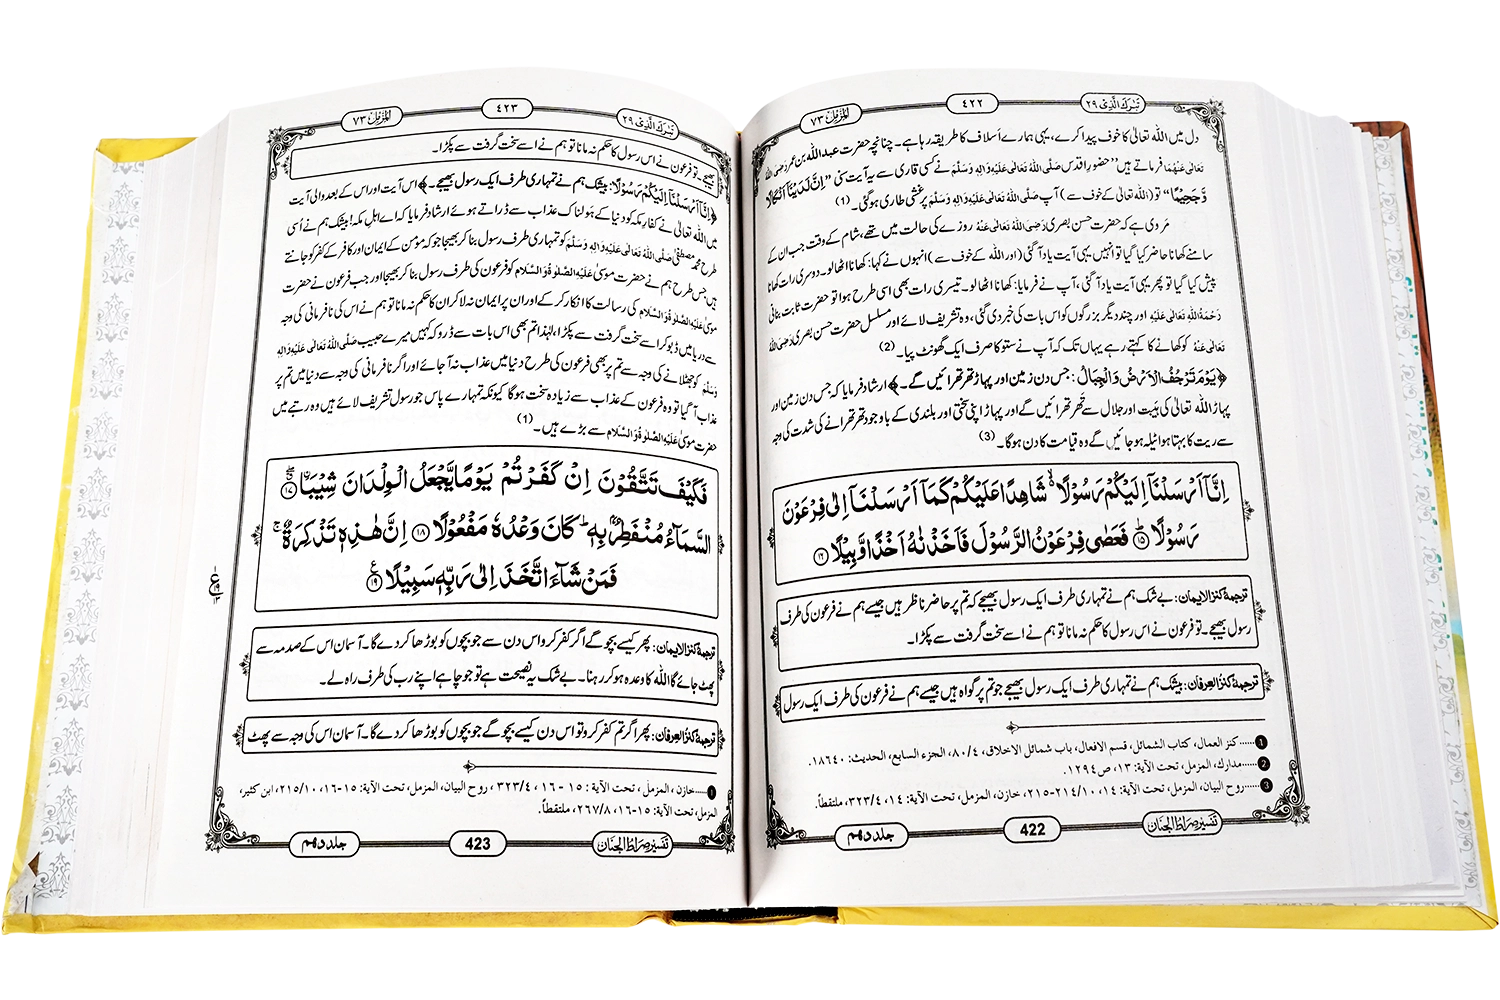 تَبٰرَكَ الَّذِیْ ٢٩
٤٢٢
المزمل ٧٣
دل میں اللہ تعالیٰ کا خوف پیدا کرے، یہی ہمارے اَسلاف کا طریقہ رہا ہے۔ چنانچہ حضرت عبد اللہ بن عمر رَضِیَ اللہُ
تَعَالٰی عَنْہُمَا فرماتے ہیں ’’حضورِ اقدس صَلَّی اللہُ تَعَالٰی عَلَیْہِ وَاٰلِہٖ وَسَلَّمَ نے کسی قاری سے یہ آیت سنی ’’اِنَّ لَدَیْنَاۤ اَنْكَالًا
وَّ جَحِیْمًا‘‘ تو (اللہ تعالیٰ کے خوف سے) آپ صَلَّی اللہُ تَعَالٰی عَلَیْہِ وَاٰلِہٖ وَسَلَّمَ پر غشی طاری ہوگئی۔(1)
مَروی ہے کہ حضرت حسن بصری رَضِیَ اللہُ تَعَالٰی عَنْہُ روزے کی حالت میں تھے، شام کے وقت جب ان کے
سامنے کھانا حاضر کیا گیا تو انہیں یہی آیت یاد آگئی (اور اللہ کے خوف سے) انہوں نے کہا: کھانا اٹھالو۔ دوسری رات کھانا
پیش کیا گیا تو پھر یہی آیت یاد آگئی، آپ نے فرمایا: کھانا اٹھالو۔ تیسری رات بھی اسی طرح ہوا تو حضرت ثابت بنانی
رَحْمَۃُ اللہِ تَعَالٰی عَلَیْہِ اور چند دیگر بزرگوں کو اس بات کی خبر دی گئی، وہ تشریف لائے اور مسلسل حضرت حسن بصری رَضِیَ اللہُ
تَعَالٰی عَنْہُ کو کھانے کا کہتے رہے یہاں تک کہ آپ نے ستو کا صرف ایک گھونٹ پیا۔(2)
﴿یَوْمَ تَرْجُفُ الْاَرْضُ وَ الْجِبَالُ: جس دن زمین اور پہاڑ تھرتھرائیں گے۔﴾ ارشاد فرمایا کہ جس دن زمین اور
پہاڑ اللہ تعالیٰ کی ہَیبت اور جلال سے تھر تھرائیں گے اور پہاڑ اپنی سختی اور بلندی کے باوجود تھرتھرانے کی شدت کی وجہ
سے ریت کا بہتا ہوا ٹیلہ ہوجائیں گے وہ قیامت کا دن ہوگا۔(3)
اِنَّاۤ اَرْسَلْنَاۤ اِلَیْكُمْ رَسُوْلًا ﳔ شَاهِدًا عَلَیْكُمْ كَمَاۤ اَرْسَلْنَاۤ اِلٰى فِرْعَوْنَ
رَسُوْلًا ﴿۱۵﴾ فَعَصٰى فِرْعَوْنُ الرَّسُوْلَ فَاَخَذْنٰهُ اَخْذًا وَّبِیْلًا ﴿۱۶﴾
ترجمۂ کنز الایمان: بے شک ہم نے تمہاری طرف ایک رسول بھیجے کہ تم پر حاضر ناظر ہیں جیسے ہم نے فرعون کی طرف
رسول بھیجے۔ تو فرعون نے اس رسول کا حکم نہ مانا تو ہم نے اسے سخت گرفت سے پکڑا۔
ترجمۂ کنز العرفان: بیشک ہم نے تمہاری طرف ایک رسول بھیجے جو تم پر گواہ ہیں جیسے ہم نے فرعون کی طرف ایک رسول
1.....کنز العمال، کتاب الشمائل، قسم الافعال، باب شمائل الاخلاق، ٤/٨٠، الجزء السابع، الحدیث: ١٨٦٤٠.
2.....مدارك، المزمل، تحت الآیۃ: ١٣، ص١٢٩٤.
3.....روح البیان، المزمل، تحت الآیۃ: ١٤، ١٠/٢١٤-٢١٥، خازن، المزمل، تحت الآیۃ: ١٤، ٤/٣٢٣، ملتقطاً.
تفسیر صراط الجنان
422
جلد دہم
تَبٰرَكَ الَّذِیْ ٢٩
٤٢٣
المزمل ٧٣
بھیجے۔ تو فرعون نے اس رسول کا حکم نہ مانا تو ہم نے اسے سخت گرفت سے پکڑا۔
﴿اِنَّاۤ اَرْسَلْنَاۤ اِلَیْكُمْ رَسُوْلًا: بیشک ہم نے تمہاری طرف ایک رسول بھیجے۔﴾ اس آیت اور اس کے بعد والی آیت
میں اللہ تعالیٰ نے کفارِ مکہ کو دنیا کے ہَولناک عذاب سے ڈراتے ہوئے ارشاد فرمایا کہ اے اہلِ مکہ! بیشک ہم نے اُسی
طرح محمد مصطفیٰ صَلَّی اللہُ تَعَالٰی عَلَیْہِ وَاٰلِہٖ وَسَلَّمَ کو تمہاری طرف رسول بنا کر بھیجا جو کہ مؤمن کے ایمان اور کافر کے کفر کو جانتے
ہیں جس طرح ہم نے حضرت موسیٰ عَلَیْہِ الصَّلٰوۃُ وَالسَّلَام کو فرعون کی طرف رسول بنا کر بھیجا اور جب فرعون نے حضرت
موسیٰ عَلَیْہِ الصَّلٰوۃُ وَالسَّلَام کی رسالت کا انکار کرکے اور ان پر ایمان نہ لا کر ان کا حکم نہ مانا تو ہم نے اس کی نافرمانی کی وجہ
سے دریا میں ڈبو کر اسے سخت گرفت سے پکڑا، لہٰذا تم بھی اس بات سے ڈرو کہ کہیں میرے حبیب صَلَّی اللہُ تَعَالٰی عَلَیْہِ وَاٰلِہٖ
وَسَلَّمَ کو جھٹلانے کی وجہ سے تم پر بھی فرعون کی طرح دنیا میں عذاب نہ آجائے اور اگر نافرمانی کی وجہ سے دنیا میں تم پر
عذاب آگیا تو وہ فرعون کے عذاب سے زیادہ سخت ہوگا کیونکہ تمہارے پاس جو رسول تشریف لائے ہیں وہ رتبے میں
حضرت موسیٰ عَلَیْہِ الصَّلٰوۃُ وَالسَّلَام سے بڑے ہیں۔(1)
فَكَیْفَ تَتَّقُوْنَ اِنْ كَفَرْتُمْ یَوْمًا یَّجْعَلُ الْوِلْدَانَ شِیْبَا ﴿۱۷﴾
السَّمَآءُ مُنْفَطِرٌۢ بِهٖؕ كَانَ وَعْدُهٗ مَفْعُوْلًا ﴿۱۸﴾ اِنَّ هٰذِهٖ تَذْكِرَةٌۚ
فَمَنْ شَآءَ اتَّخَذَ اِلٰى رَبِّهٖ سَبِیْلًا ﴿۱۹﴾
ترجمۂ کنز الایمان: پھر کیسے بچو گے اگر کفر کرو اس دن سے جو بچوں کو بوڑھا کردے گا۔ آسمان اس کے صدمہ سے
پھٹ جائے گا اللہ کا وعدہ ہو کر رہنا۔ بے شک یہ نصیحت ہے تو جو چاہے اپنے رب کی طرف راہ لے۔
ترجمۂ کنز العرفان: پھر اگر تم کفر کرو تو اس دن کیسے بچو گے جو بچوں کو بوڑھا کردے گا۔ آسمان اس کی وجہ سے پھٹ
1.....خازن، المزمل، تحت الآیۃ: ١٥-١٦، ٤/٣٢٣، روح البیان، المزمل، تحت الآیۃ: ١٥-١٦، ١٠/٢١٥، ابن کثیر،
المزمل، تحت الآیۃ: ١٥-١٦، ٨/٢٦٧، ملتقطاً.
تفسیر صراط الجنان
423
جلد دہم